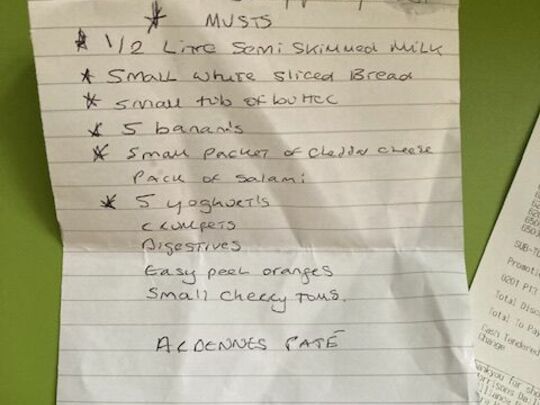 * MUSTS
* 1/2 Litre Semi Skimmed Milk
* Small white Sliced Bread
* Small tub of butter
* 5 banana's
* Small packet of cheddar cheese
Pack of Salami
* 5 yoghurt's
Crumpets
Digestives
Easy peel oranges
Small cherry toms.
ARDENNES PATÉ
SUB-TO
Promotio
0201 P13
Total Disc
Total To Pay
Cash Tendered
Change